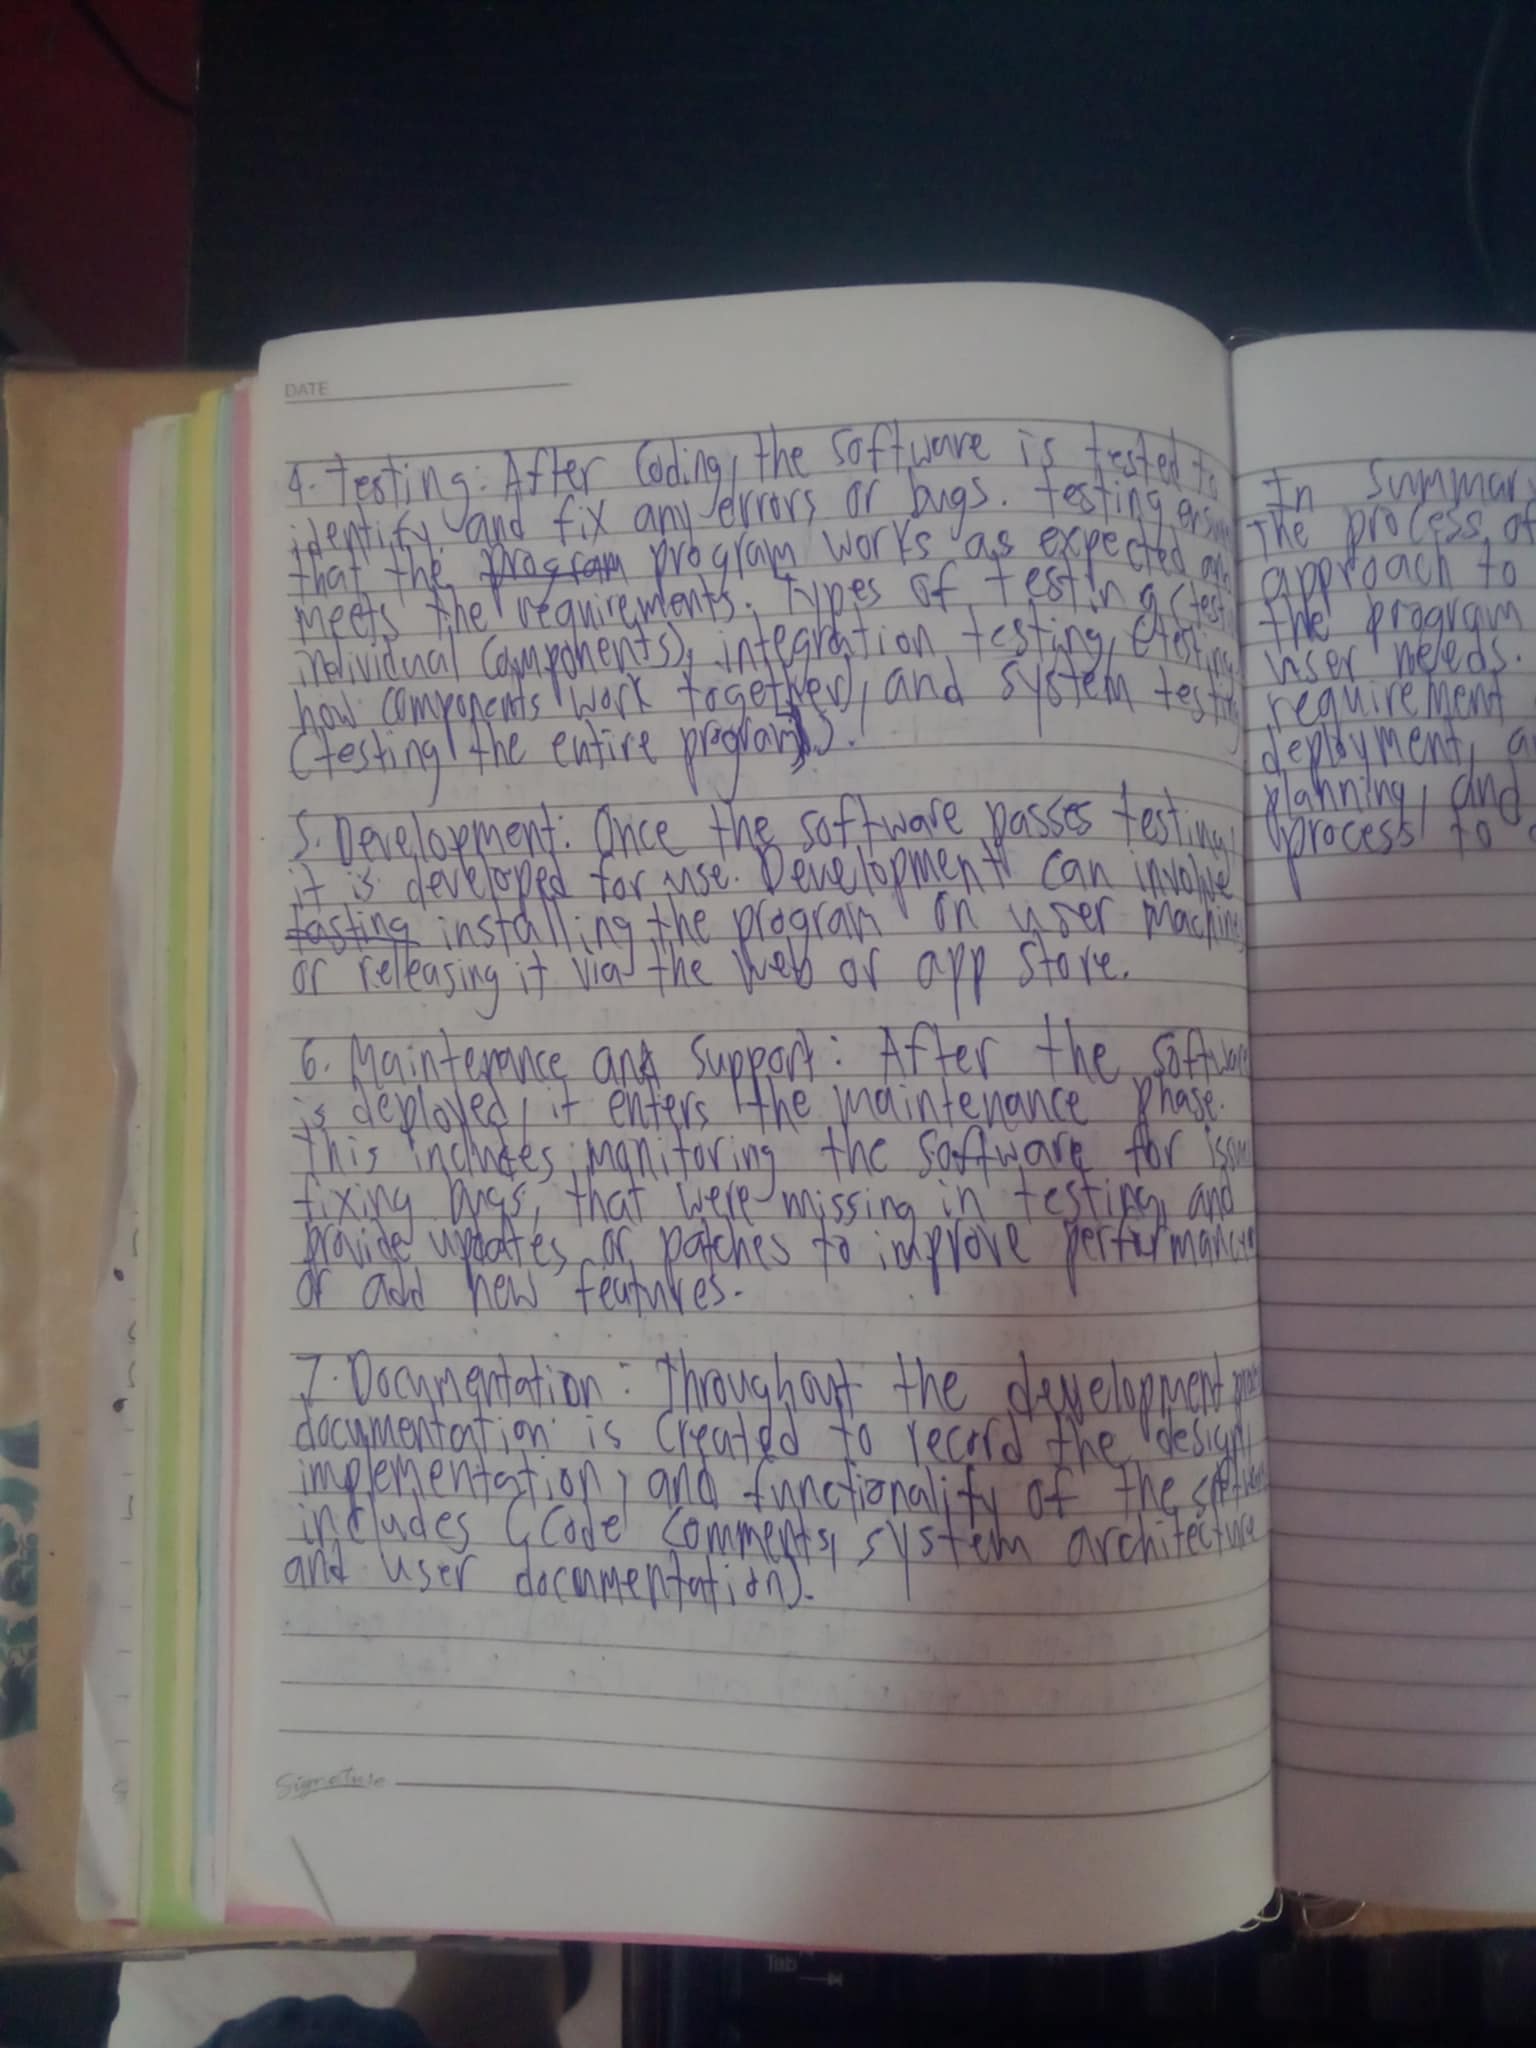 DATE
4. Testing: After Coding, the software is tested to
identify and fix any errors or bugs. Testing
that the program program works as expected
meets the requirements. Types of testing (test
individual components), integration testing, (testing
how components work together), and system
(testing the entire program).
5. Development: Once the software passes testing
it is developed for use. Development can involve
tasting installing the program on user machine
or releasing it via the web or app store.
6. Maintenance and Support: After the software
is deployed, it enters the maintenance phase.
This includes, monitoring the software for
fixing bugs, that were missing in testing, and
provide updates or patches to improve performance
or add new features.
7. Documentation: Throughout the development
documentation is created to record the design,
implementation, and functionality of the
includes (Code comments, system architecture
and user documentation).
Signature
In Summary
The process of
approach to
the program
user needs.
requirement
deployment,
planning, and
process to
Tab